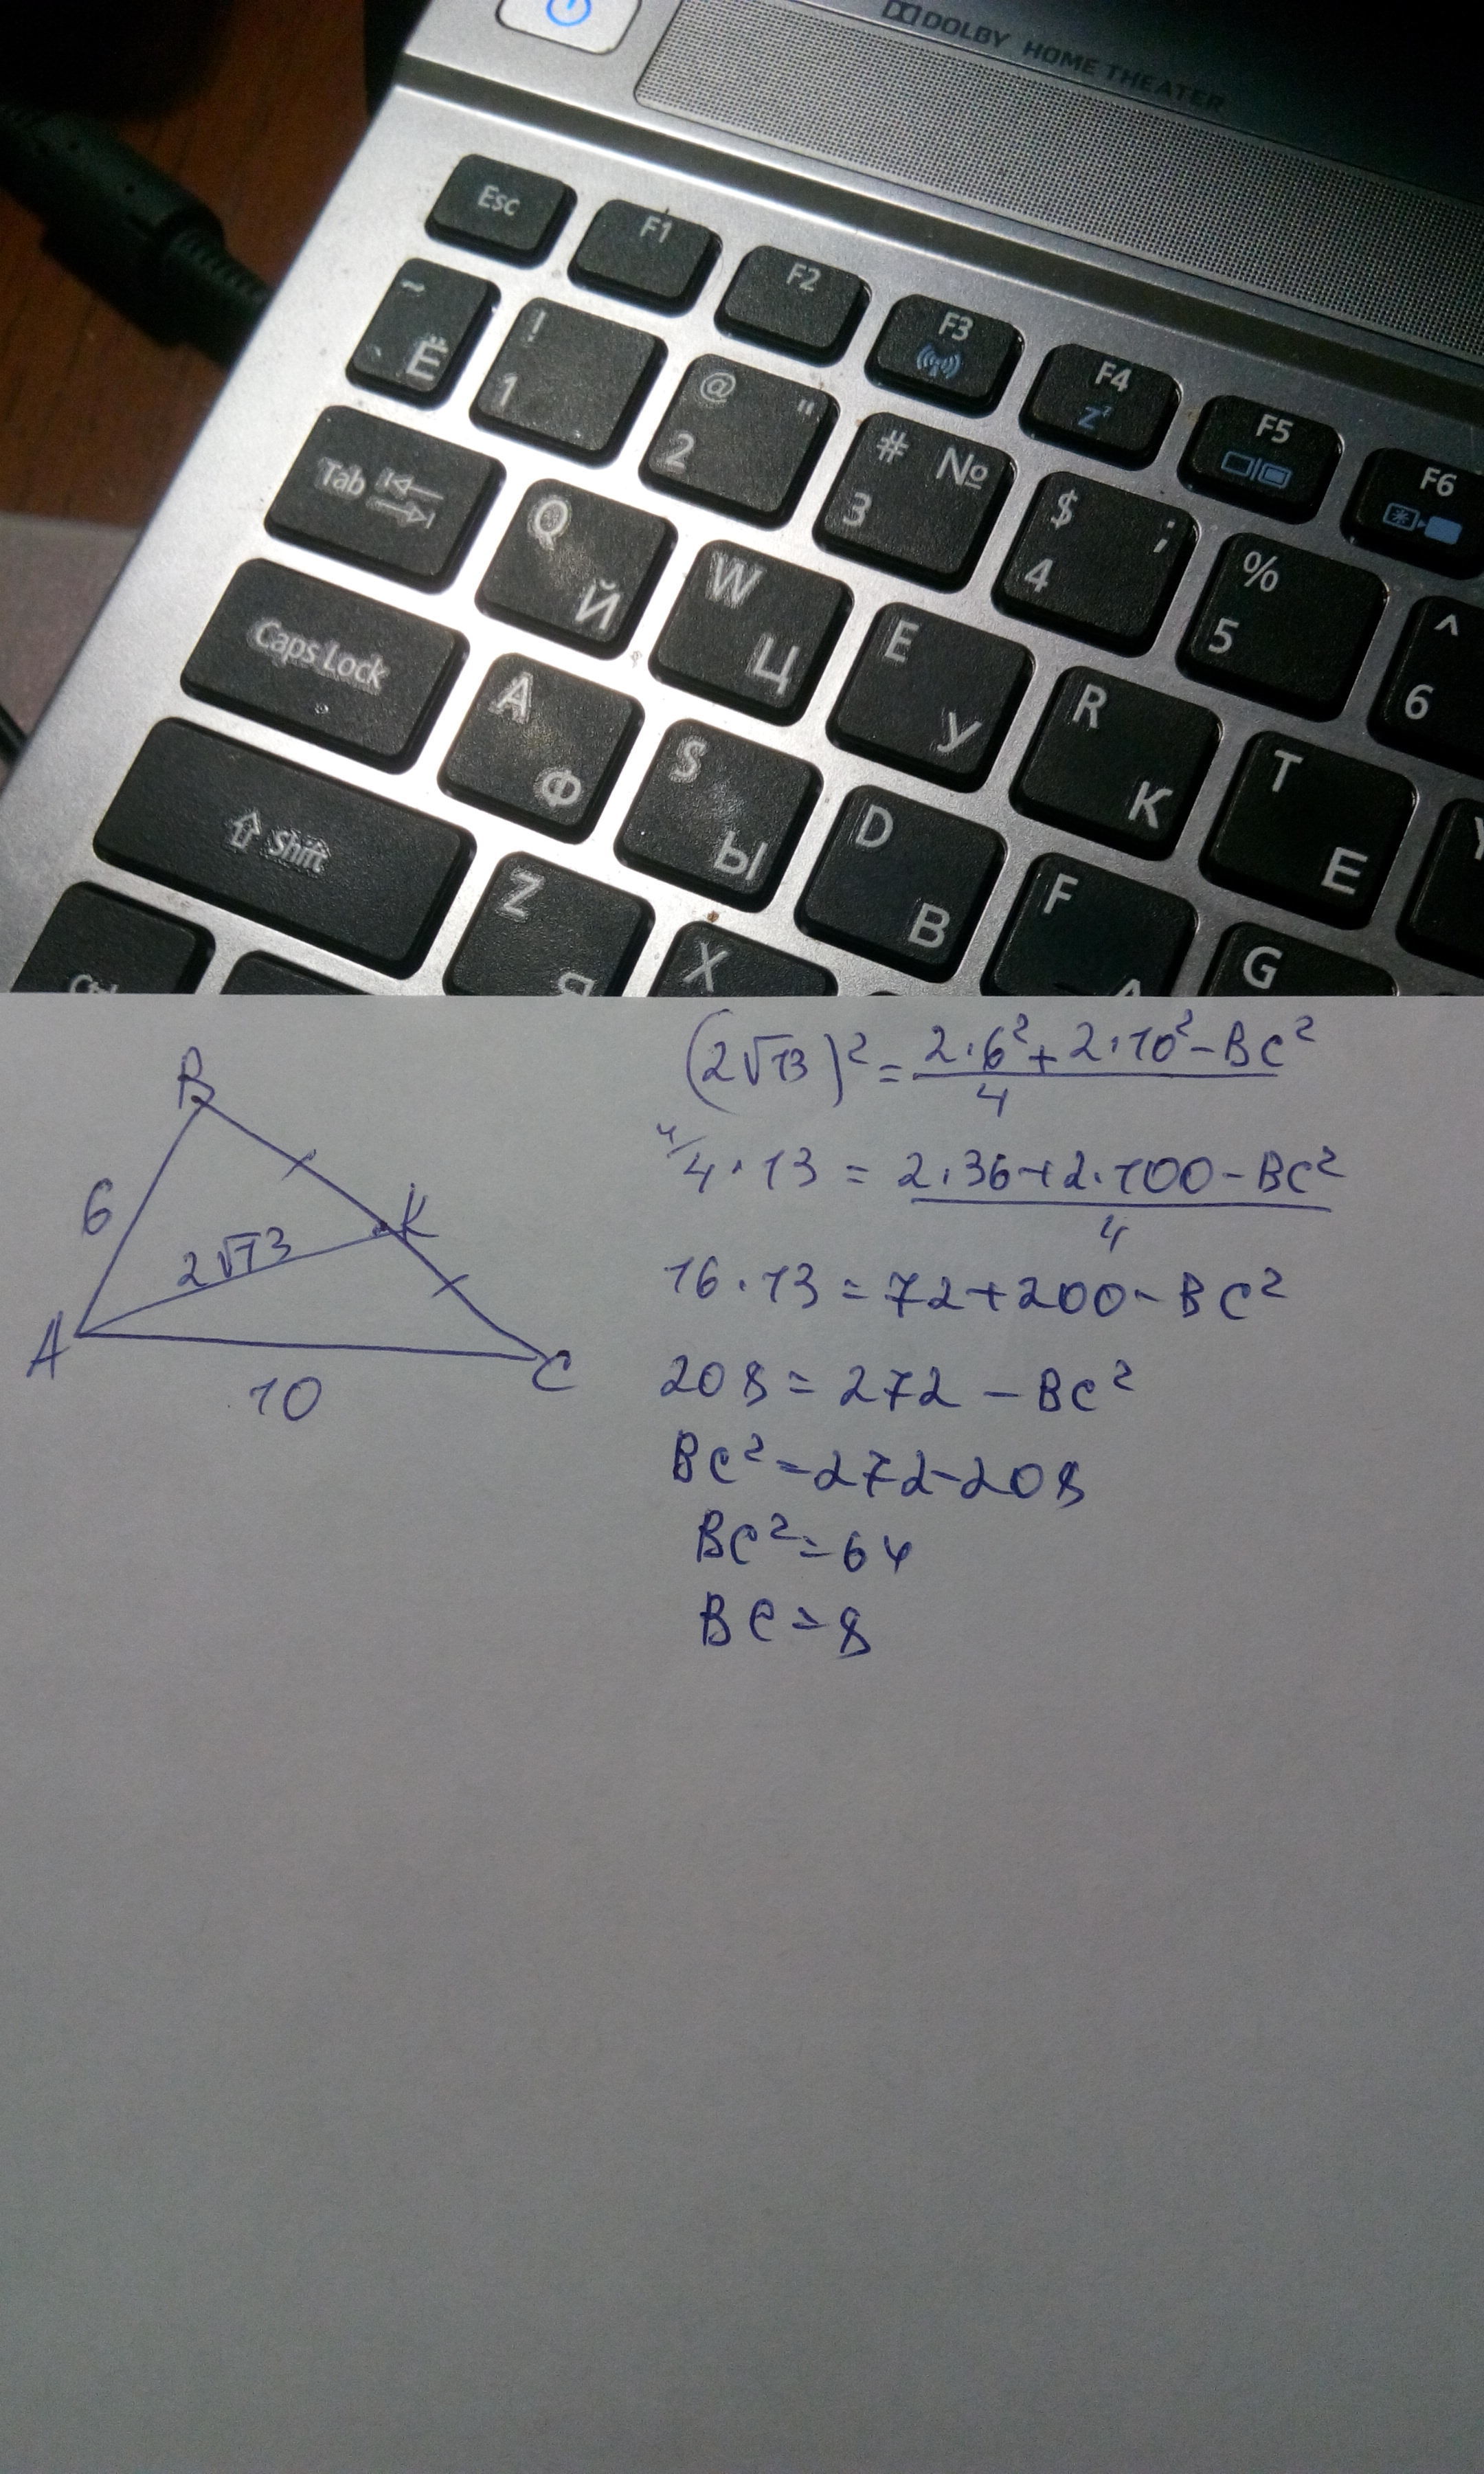 DOLBY HOME THEATER
Esc F1 F2 F3 F4 Zz F5 F6
~ ` Ё ! 1 @ " 2 # № 3 $ ; 4 % 5 ^ 6
Tab Q Й W Ц E У R К T Е Y
Caps Lock A Ф S Ы D В F А G
Shift Z Я X
Ctrl
B
6
K
2√13
A
C
10
(2√13)² = (2·6²+2·10²-BC²)/4
4/ 4·13 = (2·36+2·100-BC²)/4
16·13=72+200-BC²
208=272-BC²
BC²=272-208
BC²=64
BC=8